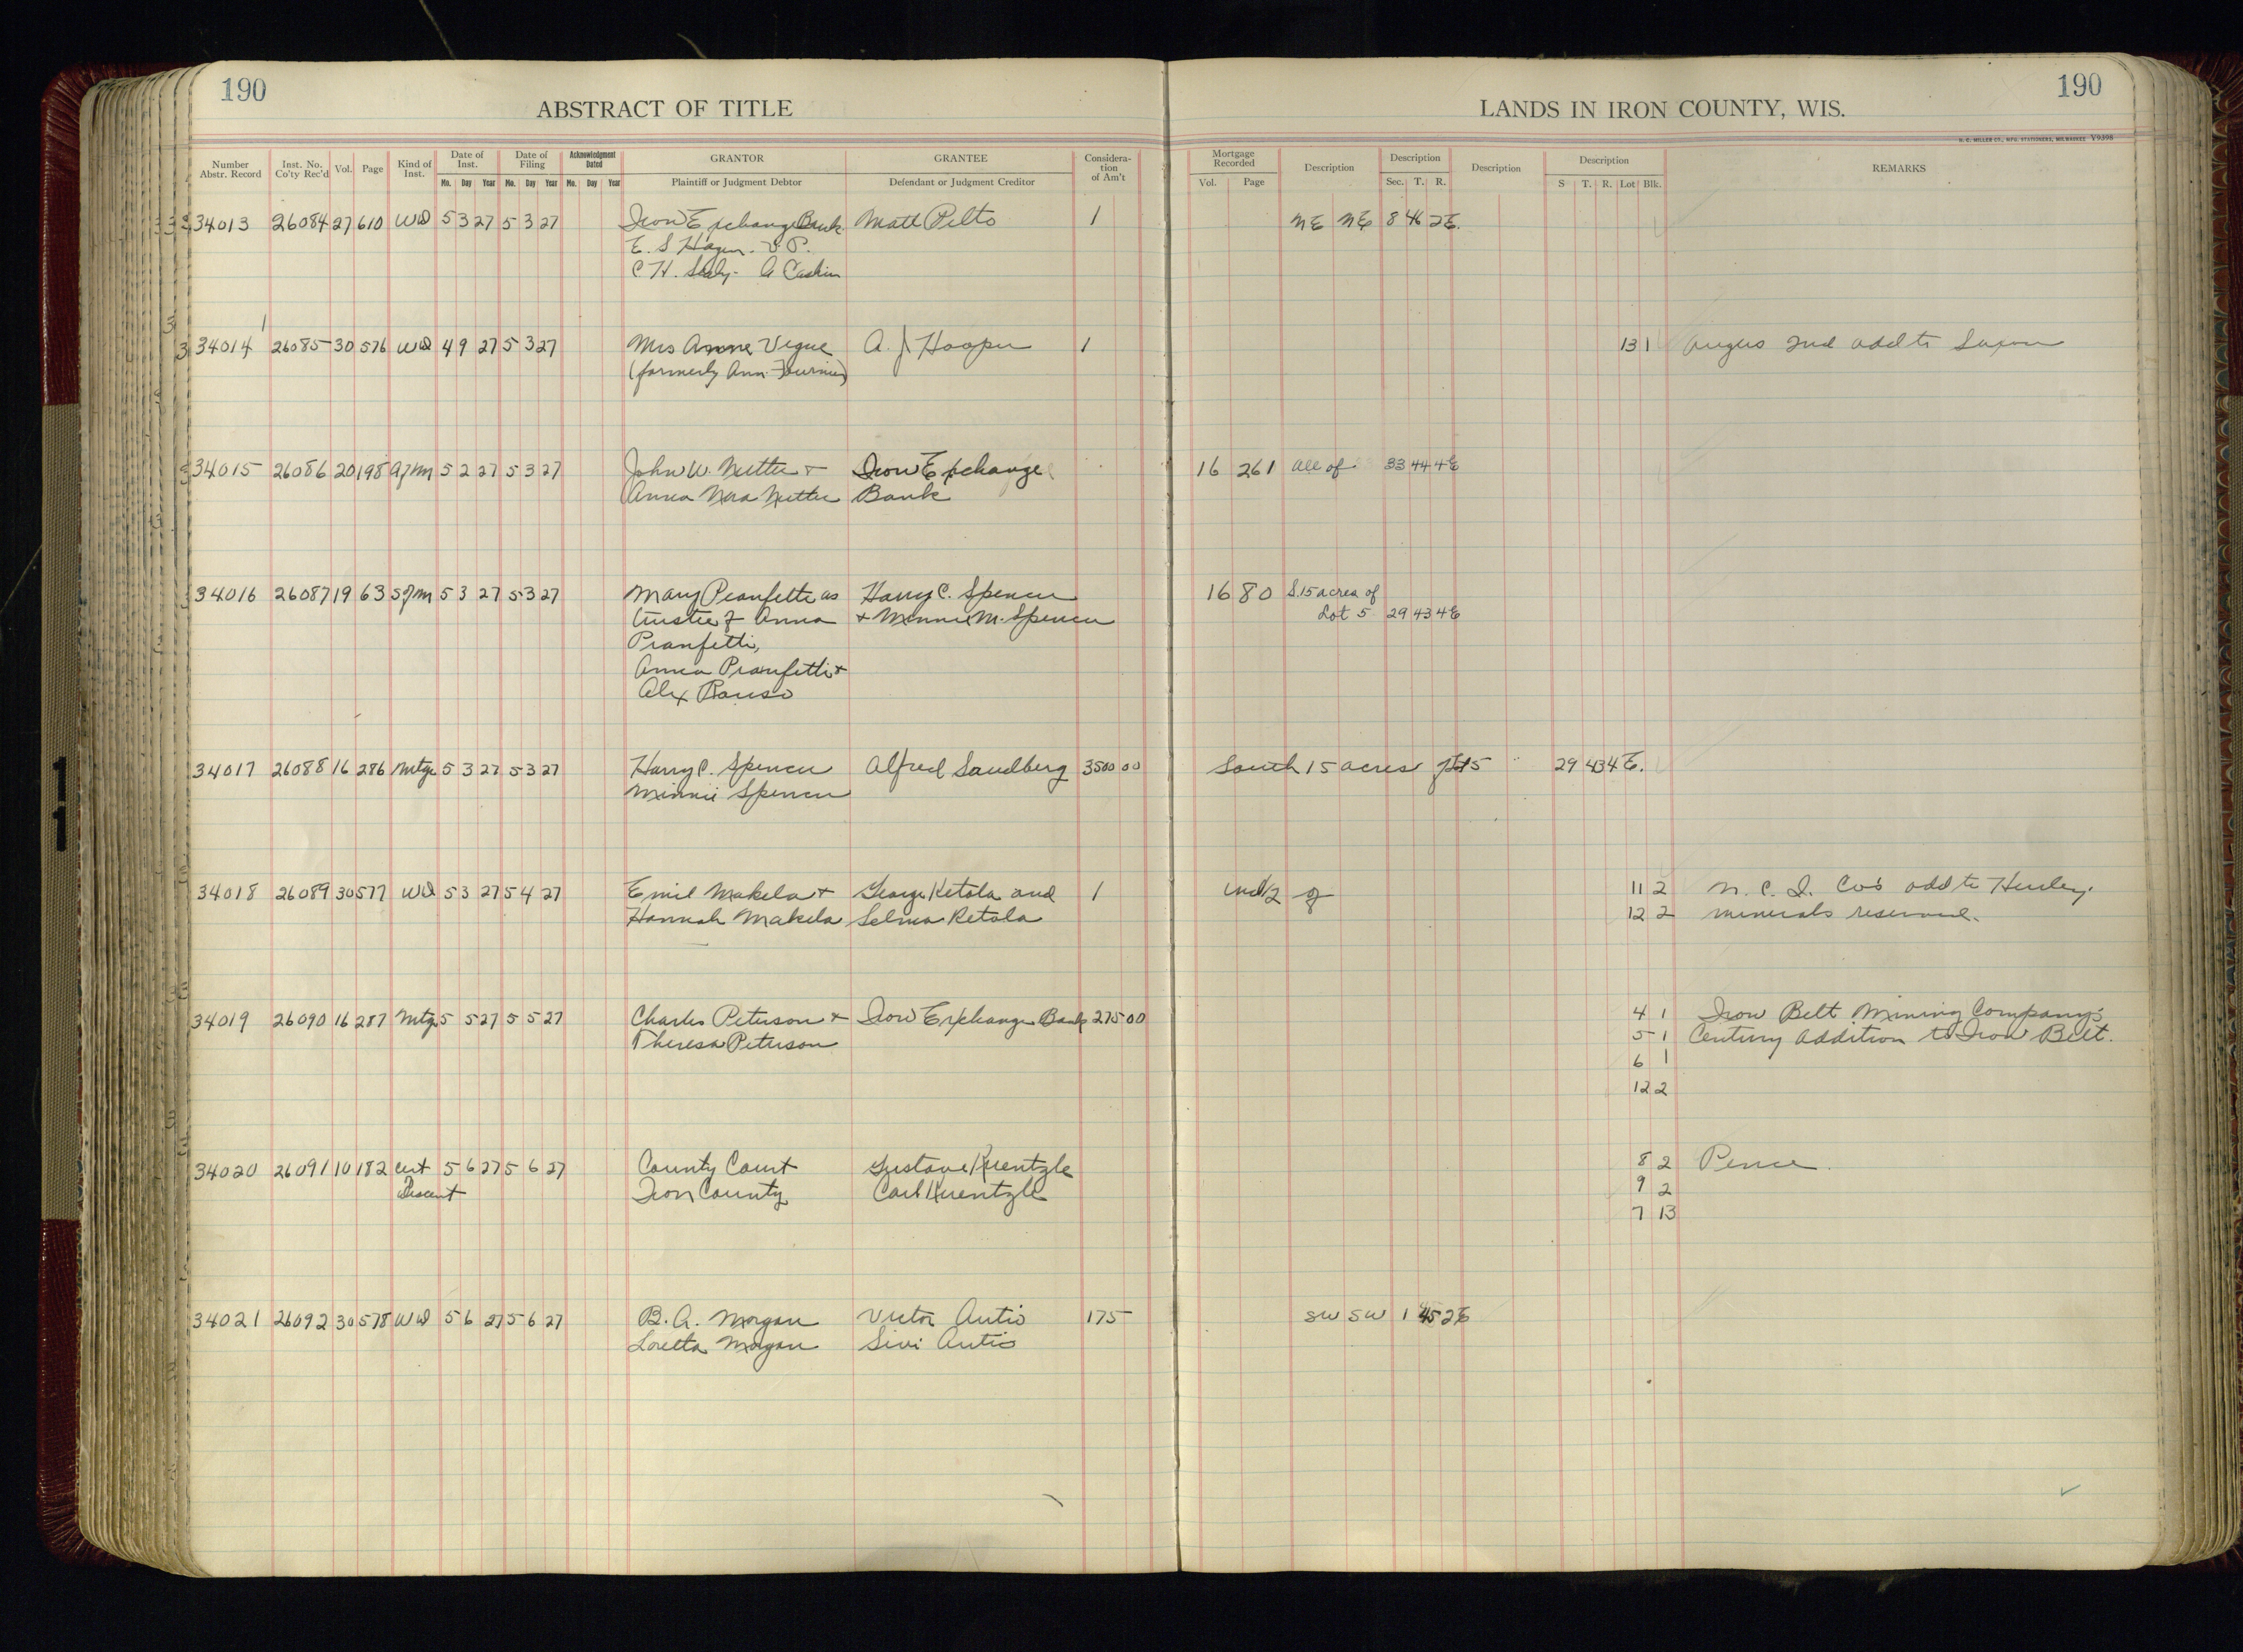 190
ABSTRACT OF TITLE
LANDS IN IRON COUNTY, WIS.
190
H. C. MILLER CO., MFG. STATIONERS, MILWAUKEE V9398
Number Abstr. Record Inst. No. Co'ty Rec'd Vol. Page Kind of Inst. Date of Inst. Mo. Day Year Date of Filing Mo. Day Year Acknowledgment Dated Mo. Day Year GRANTOR Plaintiff or Judgment Debtor GRANTEE Defendant or Judgment Creditor Considera-tion of Am't Mortgage Recorded Vol. Page Description Description Sec. T. R. Description Description S T. R. Lot Blk. REMARKS
34013 26084 27 610 WD 5 3 27 5 3 27 Iron Exchange Bank Matt Pelto 1 NE NE 8 46 2E.
E. S. Hagen. V. P.
C. H. A Cashier
34014 26085 30 576 WD 4 9 27 5 3 27 Mrs Anne Vigue A. J. Hooper 1 13 1 Angus 2nd add to Saxon
(formerly Ann Fournier)
34015 26086 20 198 5 2 27 5 3 27 John W. Nutter + Iron Exchange 16 261 all of 33 44 4E
Anna Nutter Bank
34016 26087 19 63 5 3 27 5 3 27 Mary Pranfetti as Harry C. Spencer 16 80 S. 15 acres of
trustee of Anna + Minnie M. Spencer Lot 5 29 43 4E
Pranfetti,
Anna Pranfetti +
Alex
34017 26088 16 286 Mtge 5 3 27 5 3 27 Harry C. Spencer Alfred Sandberg 3500 00 South 15 acres of Lot 5 29 43 4E.
Minnie Spencer
34018 26089 30 577 WD 5 3 27 5 4 27 Emil Makela + George Ketola and 1 und 1/2 of 11 2 N. C. I. Co's add to Hurley.
Hannah Makela Selma Ketola 12 2 minerals reserved.
34019 26090 16 287 Mtge 5 5 27 5 5 27 Charles Peterson + Iron Exchange Bank 275 00 4 1 Iron Belt Mining Company's
Theresa Peterson 5 1 Century Addition to Iron Belt.
6 1
12 2
34020 26091 10 182 Cert 5 6 27 5 6 27 County Court Gustave Kuentzle 8 2 Pence.
Descent Iron County Carl Kuentzle 9 2
7 13
34021 26092 30 578 WD 5 6 27 5 6 27 B. A. Morgan Victor Autio 175 SW SW 1 45 2E
Loretta Morgan Sivi Autio